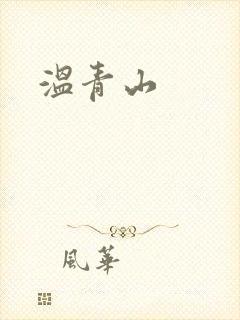 溫青山
風華